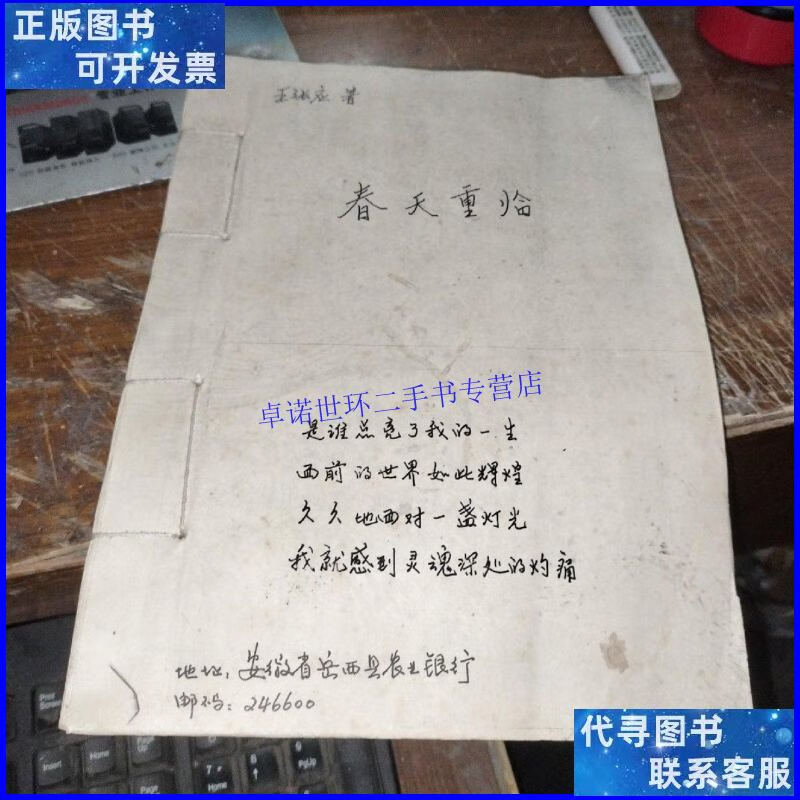 正版图书
可开发票
王张应 著
春天重临
卓诺世环二手书专营店
是谁点亮了我的一生
面前的世界如此辉煌
久久地面对一盏灯光
我就感到灵魂深处的灼痛
地址：安徽省岳西县农业银行
邮码：246600
Print
Screen
Insert
Home
PgUp
7
8
9
代寻图书
联系客服